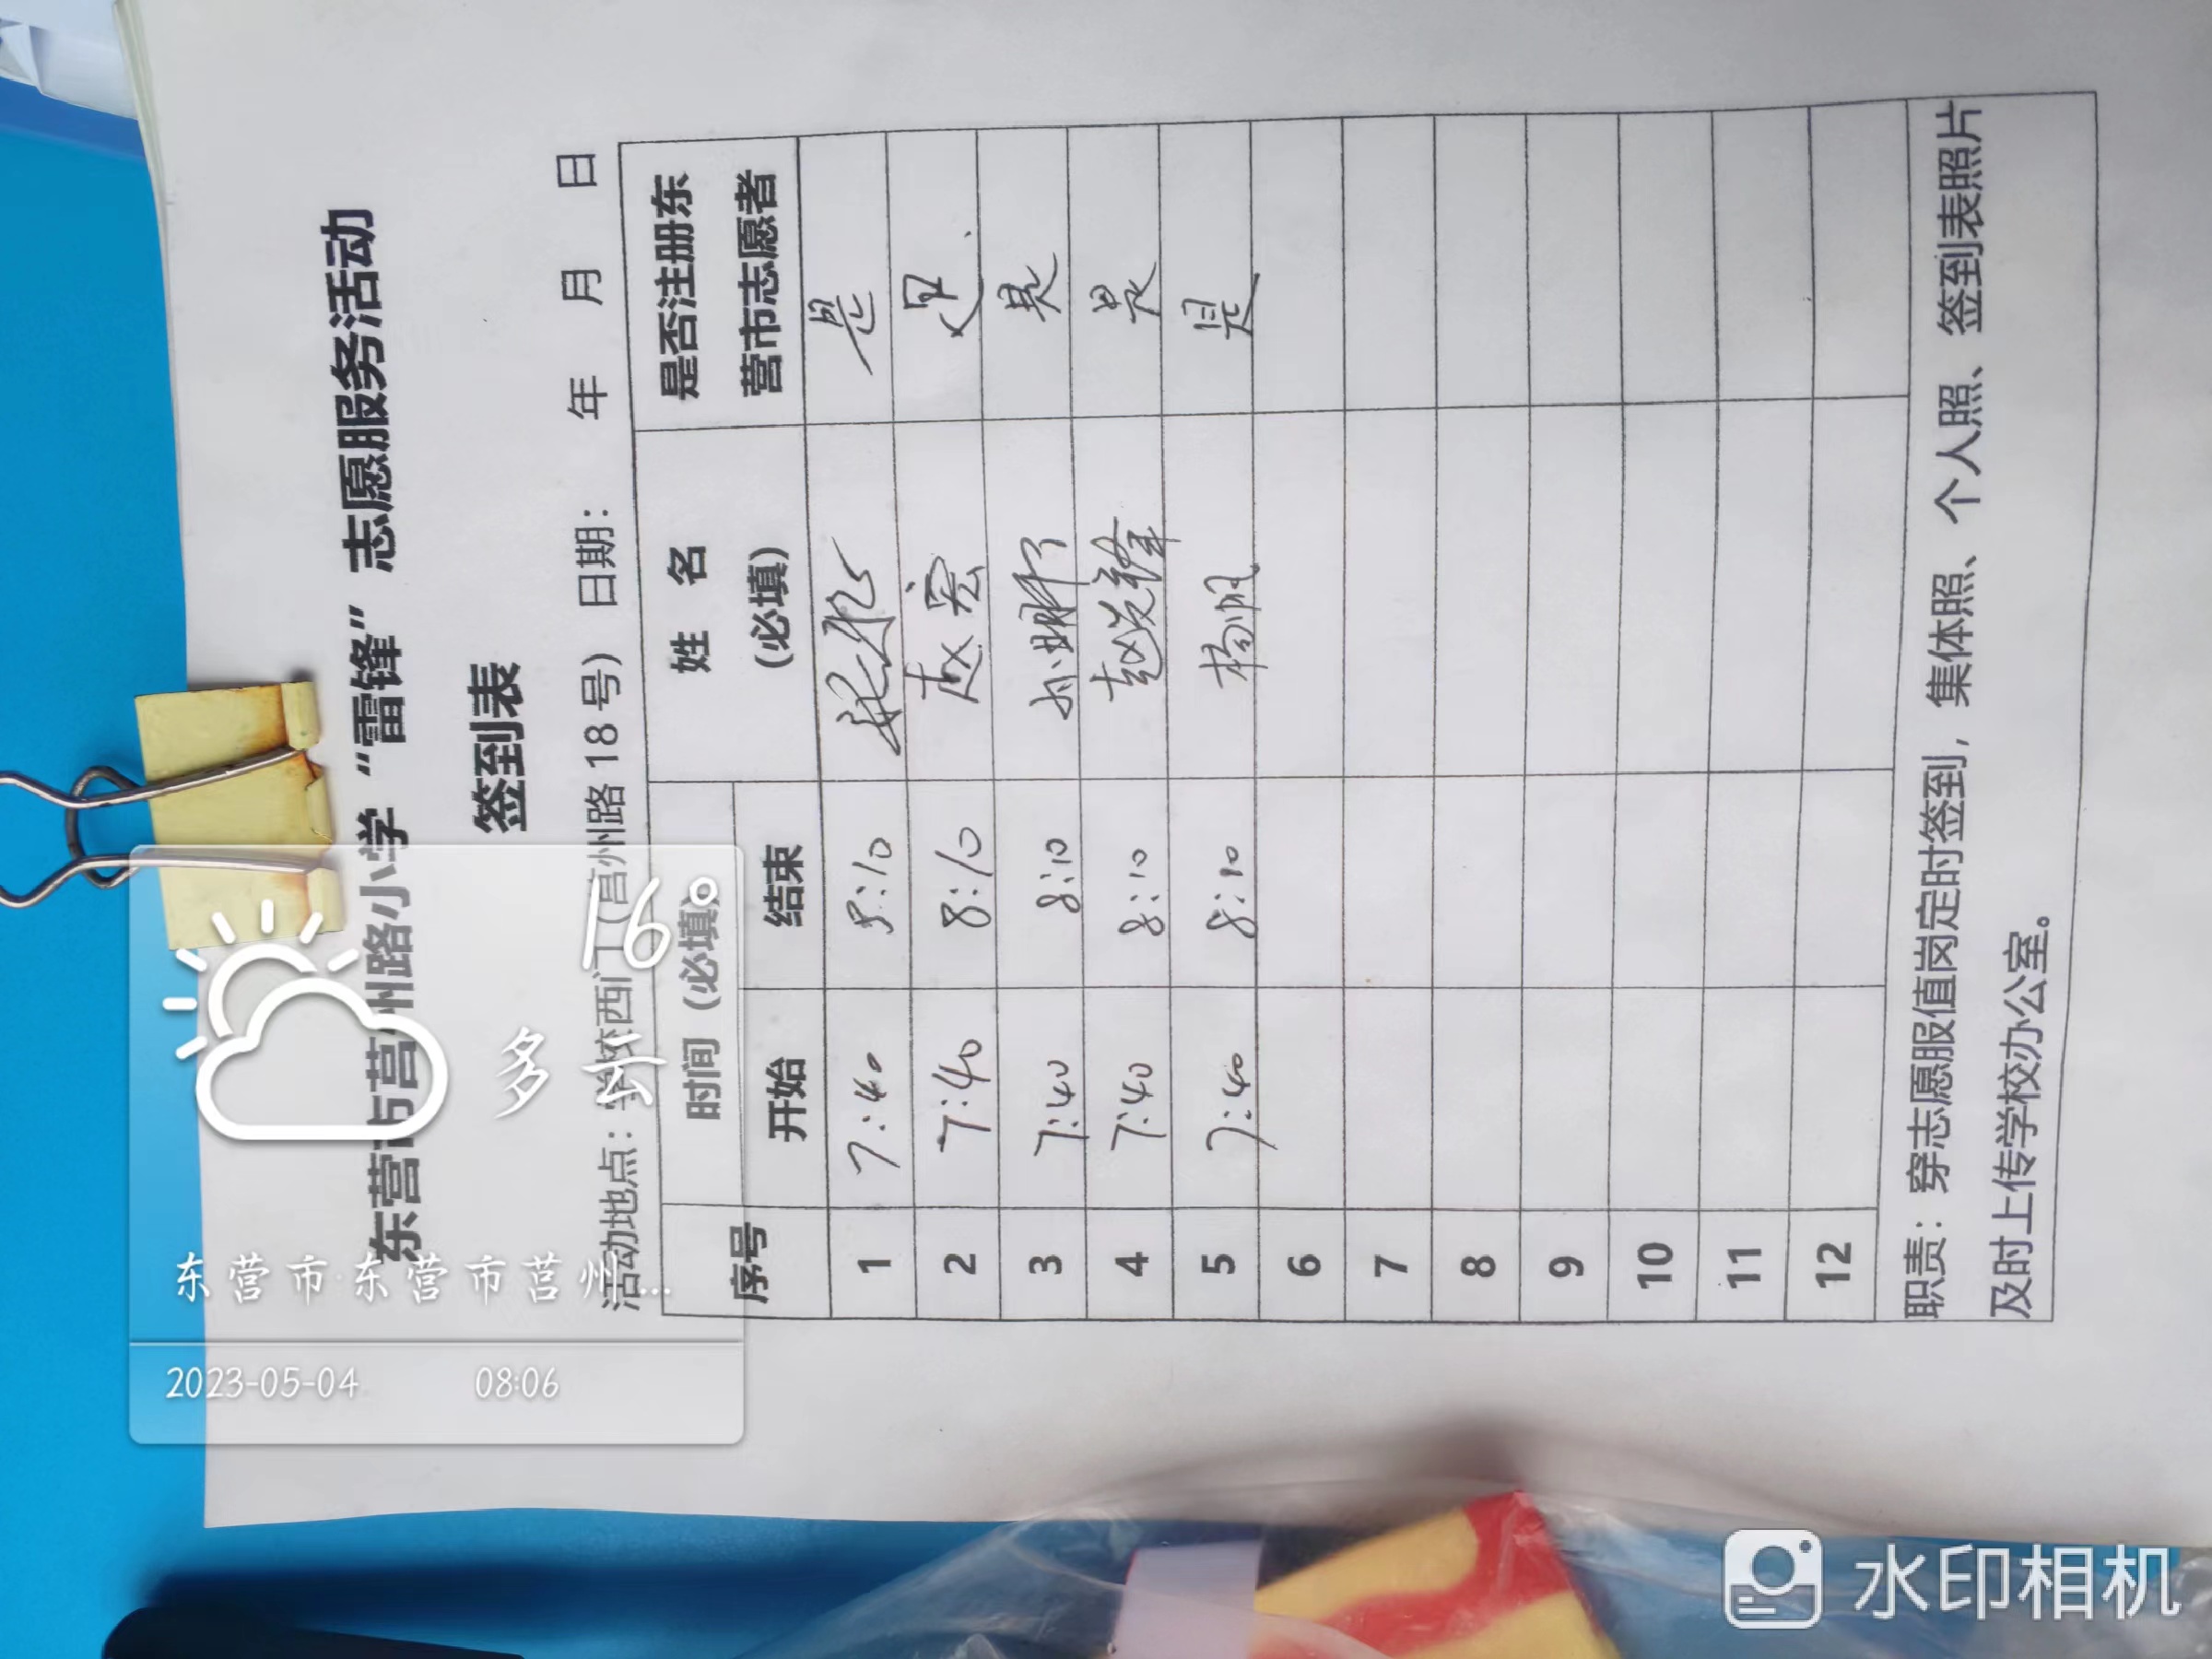 东营市莒州路小学“雷锋”志愿服务活动
签到表
活动地点：学校西门（莒州路18号）日期： 年 月 日
序号 时间（必填） 姓 名（必填） 是否注册东营市志愿者
开始 结束
1 7:40 8:10 是
2 7:40 8:10 赵宏 是
3 7:40 8:10 是
4 7:40 8:10 是
5 7:40 8:10 杨帆 是
6
7
8
9
10
11
12
职责：穿志愿服值岗定时签到，集体照、个人照、签到表照片
及时上传学校办公室。
16°
多云
东营市·东营市莒州...
2023-05-04 08:06
水印相机